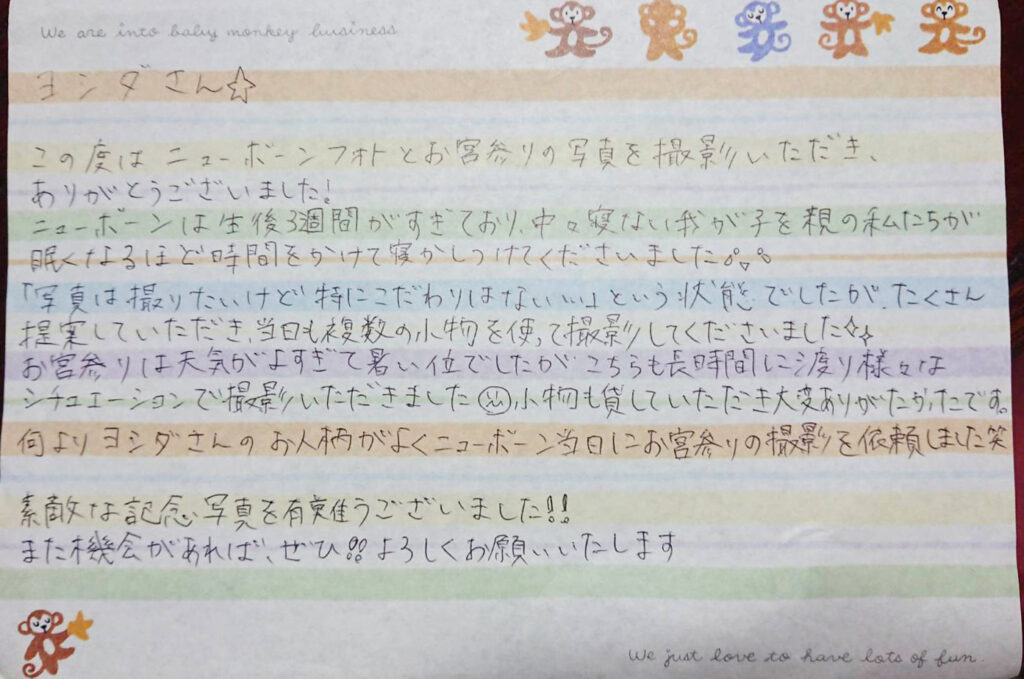 We are into baby monkey business
ヨシダさん☆
この度はニューボーンフォトとお宮参りの写真を撮影いただき、
ありがとうございました!
ニューボーンは生後3週間がすぎており、中々寝ない我が子を親の私たちが
眠くなるほど時間をかけて寝かしつけてくださいました
「写真は撮りたいけど特にこだわりはない…」という状態でしたが、たくさん
提案していただき、当日も複数の小物を使って撮影してくださいました
お宮参りは天気がよすぎて暑い位でしたがこちらも長時間に渡り様々な
シチュエーションで撮影いただきました 小物も貸していただき大変ありがたかったです。
何よりヨシダさんのお人柄がよくニューボーン当日にお宮参りの撮影を依頼しました笑
素敵な記念写真を有難うございました!!
また機会があれば、ぜひ!!よろしくお願いいたします
We just love to have lots of fun.